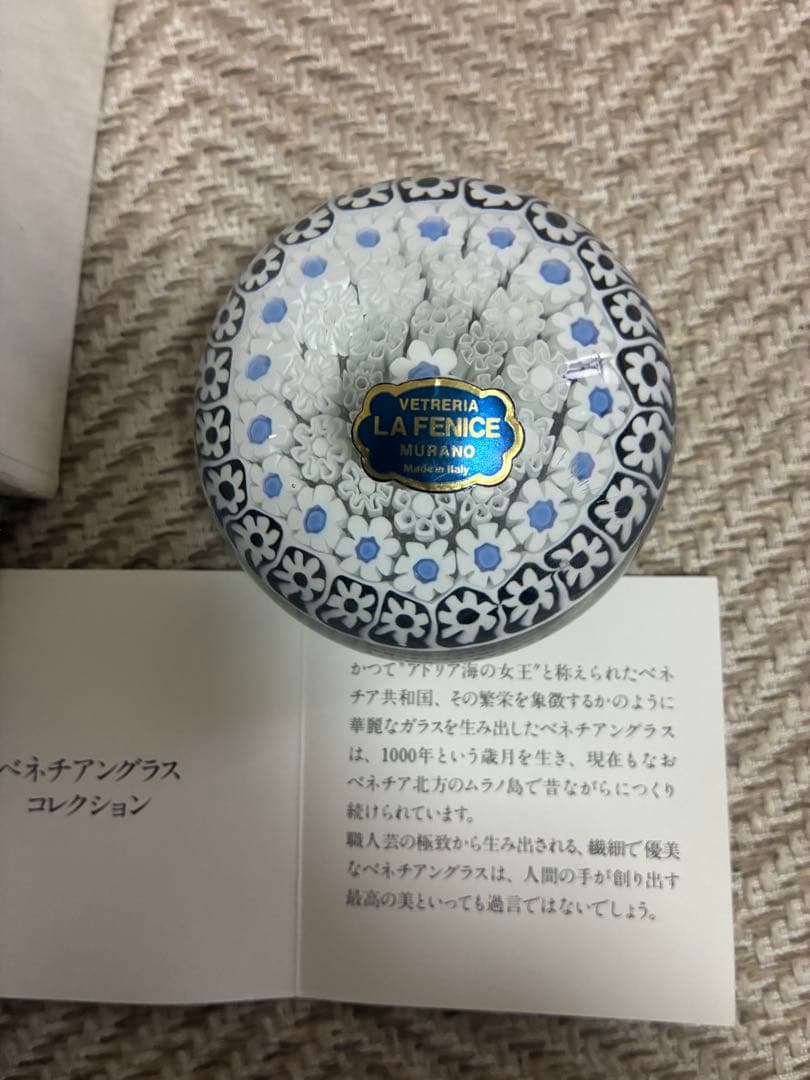 VETRERIA
LA FENICE
MURANO
Made in Italy
ベネチアングラス
コレクション
かつて"アドリア海の女王"と称えられたベネ
チア共和国、その繁栄を象徴するかのように
華麗なガラスを生み出したベネチアングラス
は、1000年という歳月を生き、現在もなお
ベネチア北方のムラノ島で昔ながらにつくり
続けられています。
職人芸の極致から生み出される、繊細で優美
なベネチアングラスは、人間の手が創り出す
最高の美といっても過言ではないでしょう。